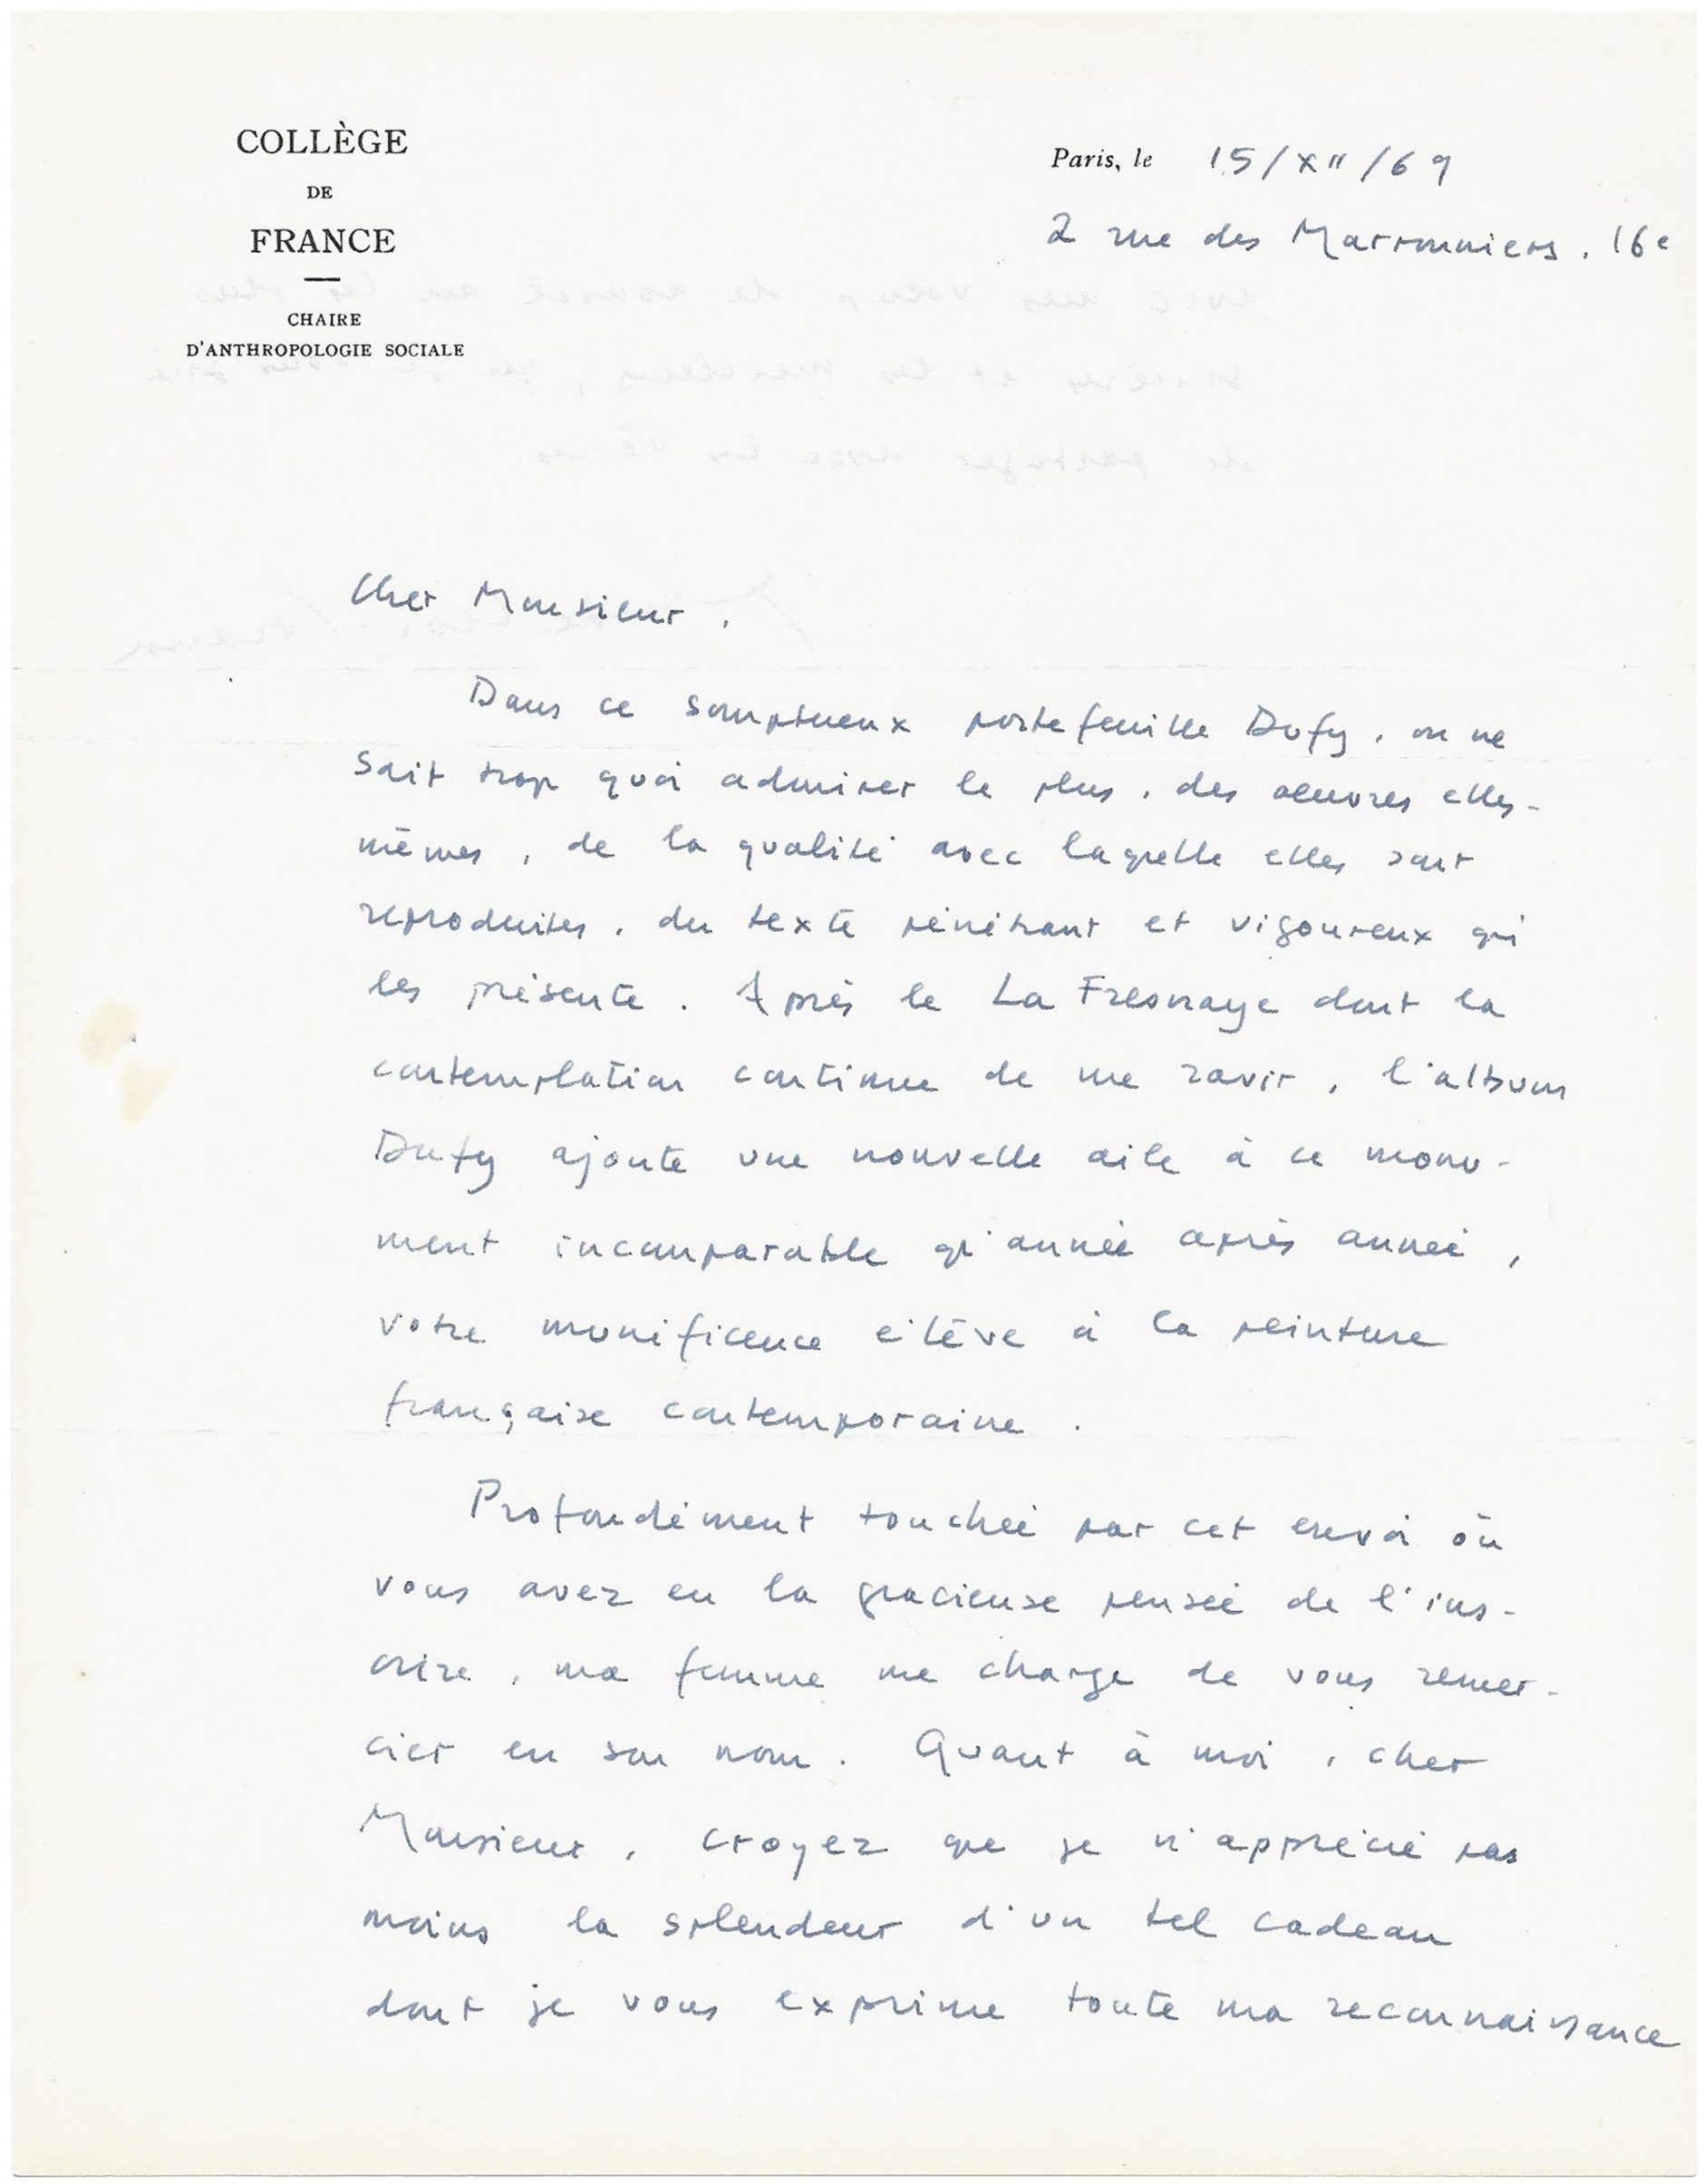 COLLÈGE
DE
FRANCE
CHAIRE
D'ANTHROPOLOGIE SOCIALE
Paris, le 15/XII/69
2 rue des Marronniers. 16e
Cher Monsieur,
Dans ce somptueux portefeuille Dufy, on ne
sait trop quoi admirer le plus, des œuvres elles-
mêmes, de la qualité avec laquelle elles sont
reproduites, du texte pénétrant et vigoureux qui
les présente. Après le La Fresnaye dont la
contemplation continue de me ravir, l'album
Dufy ajoute une nouvelle aile à ce monu-
ment incomparable qu'année après année,
votre munificence élève à la peinture
française contemporaine.
Profondément touchée par cet envoi où
vous avez eu la gracieuse pensée de l'ins-
crire, ma femme me charge de vous remer-
cier en son nom. Quant à moi, cher
Monsieur, croyez que je n'apprécie pas
moins la splendeur d'un tel cadeau
dont je vous exprime toute ma reconnaissance
avec mes vœux de nouvel an les plus
sincères et les meilleurs,
de partager avec les vôtres